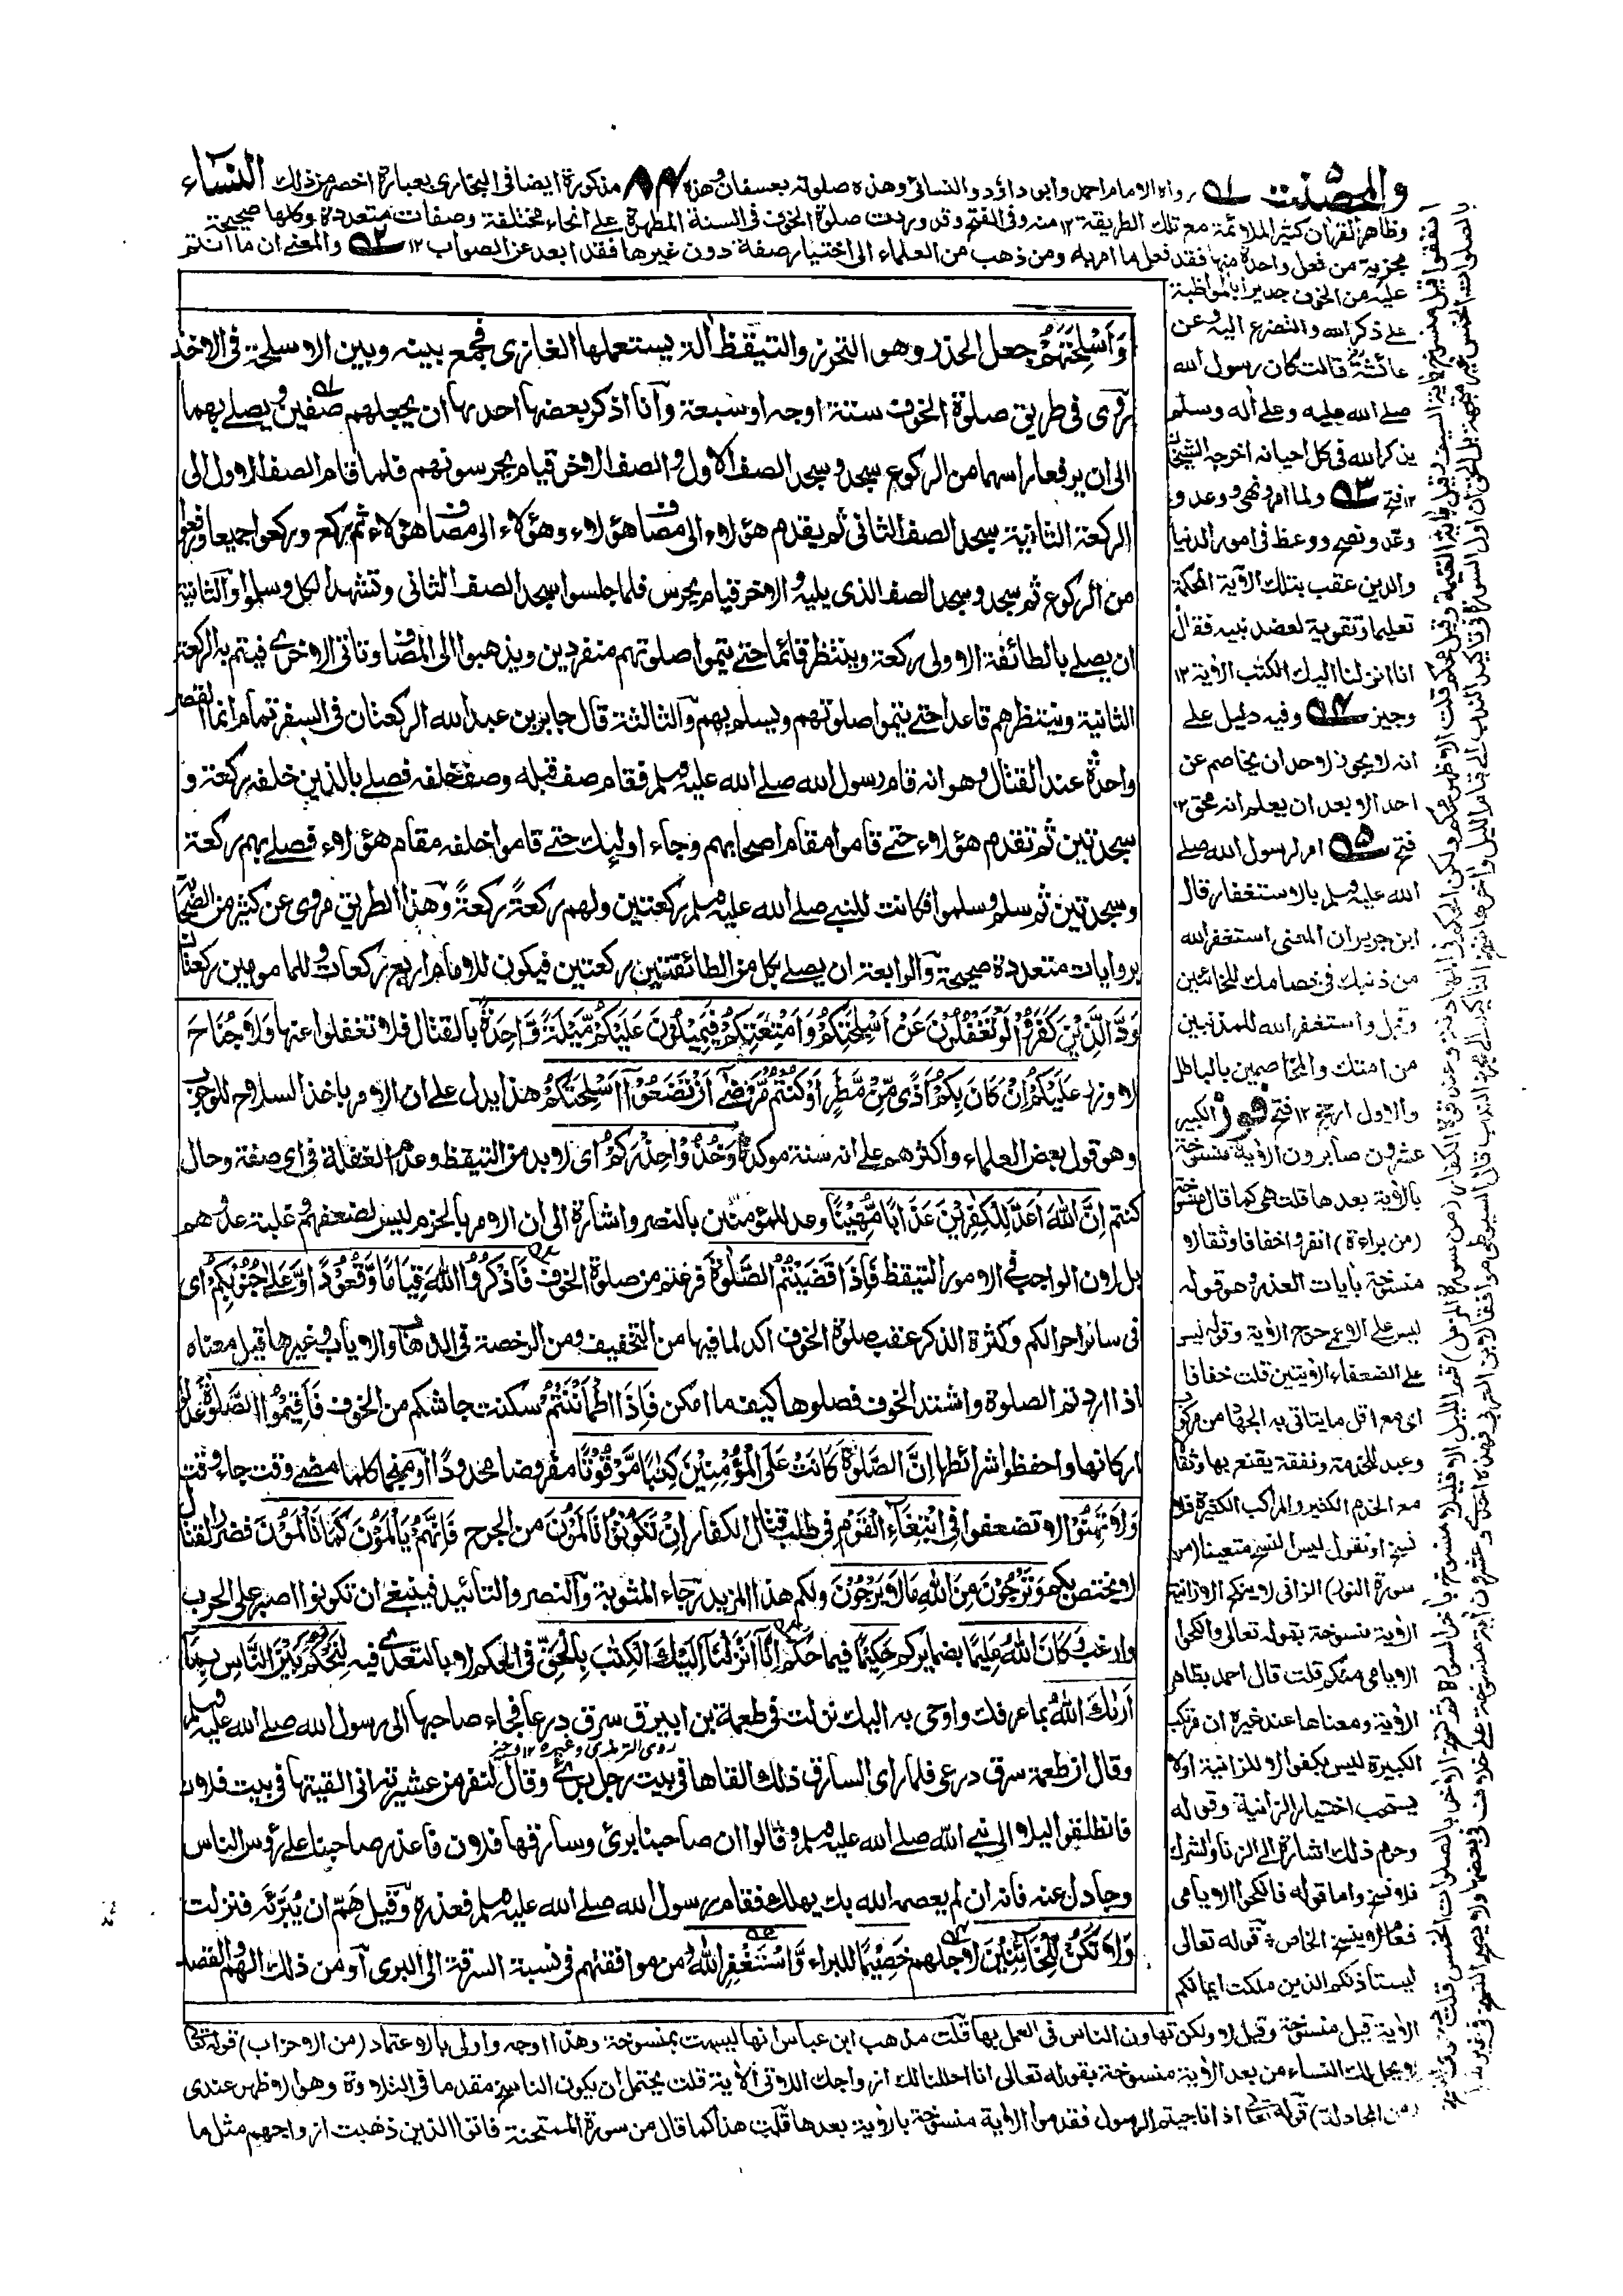 والمحصنت ٥
٨٤
النساء
له رواه الامام احمد وابى داؤد والنسائى وهذه صلوته بعسفان وهذه مذكورة ايضا فى البخارى بعبارة اخصر من ذلك
وظاهر القرآن كثير الملائمة مع تلك الطريقة ١٢ منه وفى الفتح وقد وردت صلوة الخوف فى السنة المطهرة على انحاء مختلفة وصفات متعددة وكلها صحيحة
مجزية من فعل واحدة منها فقد فعل ما امر به ومن ذهب من العلماء الى اختيار صفة دون غيرها فقد ابعد عن الصواب ١٢ ٢ه والمعنى ان ما انتم
عليه من الخوف جدير بالمواظبة
على ذكر الله والتضرع اليه وعن
عائشة قالت كان رسول الله
صلے الله عليه وعلى أله وسلم
يذكر الله فى كل احيانه اخرجه الشيخان
١٢ فتح ٣ه ولما امر ونهى ووعد و
وعد ونصح ووعظ فى امور الدنيا
والدين عقب بتلك الآية المحكمة
تعليما وتقوية لعضد نبيه فقال
انا انزلنا اليك الكتب الأية ١٢
وجيز ٤ه وفيه دليل على
انه لا يجوز لاحد ان يخاصم عن
احد الا بعد ان يعلم انه محق ١٢
فتح ٥ه امر لرسول الله صلے
الله عليه وسلم بالاستغفار قال
ابن جرير ان المعنى استغفر الله
من ذنبك فى خصامك للخائنين
وقيل واستغفر الله للمذنبين
من امتك والمخاصمين بالباطل
والاول ارجح ١٢ فتح فوز الكبير
عشرون صابرون الأية منسوخة
بالأية بعدها قلت هى كما قال منسوخة
(من براءة) انفروا خفافا وثقالا
منسوخة بأيات العذر وهو قوله
ليس على الاعمى حرج الأية وقوله ليس
على الضعفاء الأيتين قلت خفافا
اى مع اقل ما يتاتى به الجهاد من مركوب
وعبد للخدمة ونفقة يقنع بها وثقالا
مع الخدم الكثير والمراكب الكثيرة فلا
نسخ او نقول ليس النسخ متعينا (من
سورة النور) الزانى لا ينكح الا زانية
الأية منسوخة بقوله تعالى وانكحوا
الايامى منكم قلت قال احمد بظاهر
الأية ومعناها عند غيره ان مرتكب
الكبيرة ليس بكفو الا للزانية او لا
يستحب اختيار الزانية وقوله
وحرم ذلك اشارة الى الزنا والشرك
فلا نسخ واما قوله فانكحوا الايامى
فعام لا ينسخ الخاص قوله تعالى
ليستاذنكم الذين ملكت ايمانكم
الأية قيل منسوخة وقيل لا ولكن تهاون الناس فى العمل بها قلت مذهب ابن عباس انها ليست بمنسوخة وهذا اوجه واولى بالاعتماد (من الاحزاب) قوله تعالى
لا يحل لك النساء من بعد الأية منسوخة بقوله تعالى انا احللنا لك ازواجك اللاتى الأية قلت يحتمل ان يكون الناسخ مقدما فى التلاوة وهو الاظهر عندى
(من المجادلة) قوله تعالى اذا ناجيتم الرسول فقدموا الأية منسوخة بالأية بعدها قلت هذا كما قال من سورة الممتحنة فاتوا الذين ذهبت ازواجهم مثل ما
وَاَسْلِحَتَهُمْ جعل الحذر وهو التحرز والتيقظ ألة يستعملها الغازى فجمع بينه وبين الاسلحة فى الاخذ
روى فى طريق صلوة الخوف ستة اوجه او سبعة وأنا اذكر بعضها احدها ان يجعلهم صفين ويصلے بهما
الى ان يرفعا راسهما من الركوع سجد وسجد الصف الاول والصف الاخر قيام يحرسونهم فلما قام الصف الاول الى
الركعة الثانية سجد الصف الثانى ثم يقدم هؤلاء الى مصاف هؤلاء وهؤلاء الى مصاف هؤلاء ثم ركع وركعوا جميعا ورفعوا
من الركوع ثم سجد وسجد الصف الذى يليه والاخر قيام يحرس فلما جلسوا سجد الصف الثانى وتشهد الكل وسلموا والثانية
ان يصلے بالطائفة الاولى ركعة وينتظر قائما حتے يتموا صلوتهم منفردين ويذهبوا الى المصاف وتاتى الاخرى فيتم به الركعة
الثانية وينتظرهم قاعدا حتے يتموا صلوتهم ويسلم بهم والثالثة قال جابر بن عبد الله الركعتان فى السفر تمام انما القصر
واحدة عند القتال وهو انه قام رسول الله صلے الله عليه وسلم فقام صف قبله وصف خلفه فصلے بالذين خلفه ركعة و
سجدتين ثم تقدم هؤلاء حتے قاموا مقام اصحابهم وجاء اولئك حتے قاموا خلفه مقام هؤلاء فصلے بهم ركعة
وسجدتين ثم سلم وسلموا فكانت للنبے صلے الله عليه وسلم ركعتين ولهم ركعةً ركعةً وهذا الطريق مروى عن كثير من الصحابة
بروايات متعددة صحيحة والرابعة ان يصلے بكل من الطائفتين ركعتين فيكون للامام اربع ركعات وللمامومين ركعتان
وَدَّ الَّذِيْنَ كَفَرُوْا لَوْ تَغْفُلُوْنَ عَنْ اَسْلِحَتِكُمْ وَاَمْتِعَتِكُمْ فَيَمِيْلُوْنَ عَلَيْكُمْ مَّيْلَةً وَّاحِدَةً بالقتال فلا تغفلوا عنها وَلَا جُنَاحَ
لا وزر عَلَيْكُمْ اِنْ كَانَ بِكُمْ اَذًى مِّنْ مَّطَرٍ اَوْ كُنْتُمْ مَّرْضٰے اَنْ تَضَعُوْا اَسْلِحَتَكُمْ هذا يدل على ان الامر باخذ السلاح للوجوب
وهو قول بعض العلماء واكثرهم على انه سنة موكدة وَخُذُوْا حِذْرَكُمْ اى لا بد من التيقظ وعدم الغفلة فى اى صفة وحال
كنتم اِنَّ اللّٰهَ اَعَدَّ لِلْكٰفِرِيْنَ عَذَابًا مُّهِيْنًا وعد للمؤمنين بالنصر واشارة الى ان الامر بالحزم ليس لضعفهم وغلبة عدوهم
بل لان الواجب فے الامور التيقظ فَاِذَا قَضَيْتُمُ الصَّلٰوةَ فرغتم من صلوة الخوف فَاذْكُرُوا اللّٰهَ قِيَامًا وَّقُعُوْدًا وَّعَلٰى جُنُوْبِكُمْ اى
فى سائر احوالكم وكثرة الذكر عقب صلوة الخوف اكد لما فيها من التخفيف ومن الرخصة فى الذهاب والاياب وغيرها قيل معناه
اذا اردتم الصلوة واشتد الخوف فصلوها كيف ما امكن فَاِذَا اطْمَاْنَنْتُمْ سكنت جاشكم من الخوف فَاَقِيْمُوا الصَّلٰوةَ عدلوا
اركانها واحفظوا شرائطها اِنَّ الصَّلٰوةَ كَانَتْ عَلَى الْمُؤْمِنِيْنَ كِتٰبًا مَّوْقُوْتًا مفروضا محدودًا او منجما كلما مضے وقت جاء وقت
وَلَا تَهِنُوْا لا تضعفوا فِى ابْتِغَآءِ الْقَوْمِ فى طلب قتال الكفار اِنْ تَكُوْنُوْا تَاْلَمُوْنَ من الجرح فَاِنَّهُمْ يَاْلَمُوْنَ كَمَا تَاْلَمُوْنَ فضرر القتال
لا يختص بكم وَتَرْجُوْنَ مِنَ اللّٰهِ مَا لَا يَرْجُوْنَ ولكم هذا المزيد رجاء المثوبة والنصر والتائيد فينبغے ان تكونوا اصبر على الحرب
وارغب وَكَانَ اللّٰهُ عَلِيْمًا بضمايركم حَكِيْمًا فيما حكم اِنَّا اَنْزَلْنَآ اِلَيْكَ الْكِتٰبَ بِالْحَقِّ فى الحكم لا بالتعدے فيه لِتَحْكُمَ بَيْنَ النَّاسِ بِمَا
اَرٰىكَ اللّٰهُ بما عرفك واوحى به اليك نزلت فى طعمة بن ابيرق سرق درعا فجاء صاحبها الى رسول الله صلے الله عليه وسلم
روى الترمذى وغيره ١٢ وجيز
وقال ان طعمة سرق درعى فلما راى السارق ذلك القاها فى بيت رجل برئ وقال لنفر من عشيرته انى القيتها فى بيت فلان
فانطلقوا ليلا الى نبے الله صلے الله عليه وسلم وقالوا ان صاحبنا برئ وسارقها فلان فاعذر صاحبنا على رؤس الناس
وجادل عنه فانه ان لم يعصمه الله بك يهلك فقام رسول الله صلے الله عليه وسلم فعذره وقيل همّ ان يبرّئه فنزلت
وَلَا تَكُنْ لِّلْخَآئِنِيْنَ لاجلهم خَصِيْمًا للبراء وَّاسْتَغْفِرِ اللّٰهَ من موافقتهم فى نسبة السرقة الى البرى أو من ذلك الهم والقصد